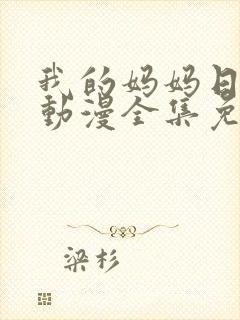 我的妈妈日
動漫全集免
梁杉